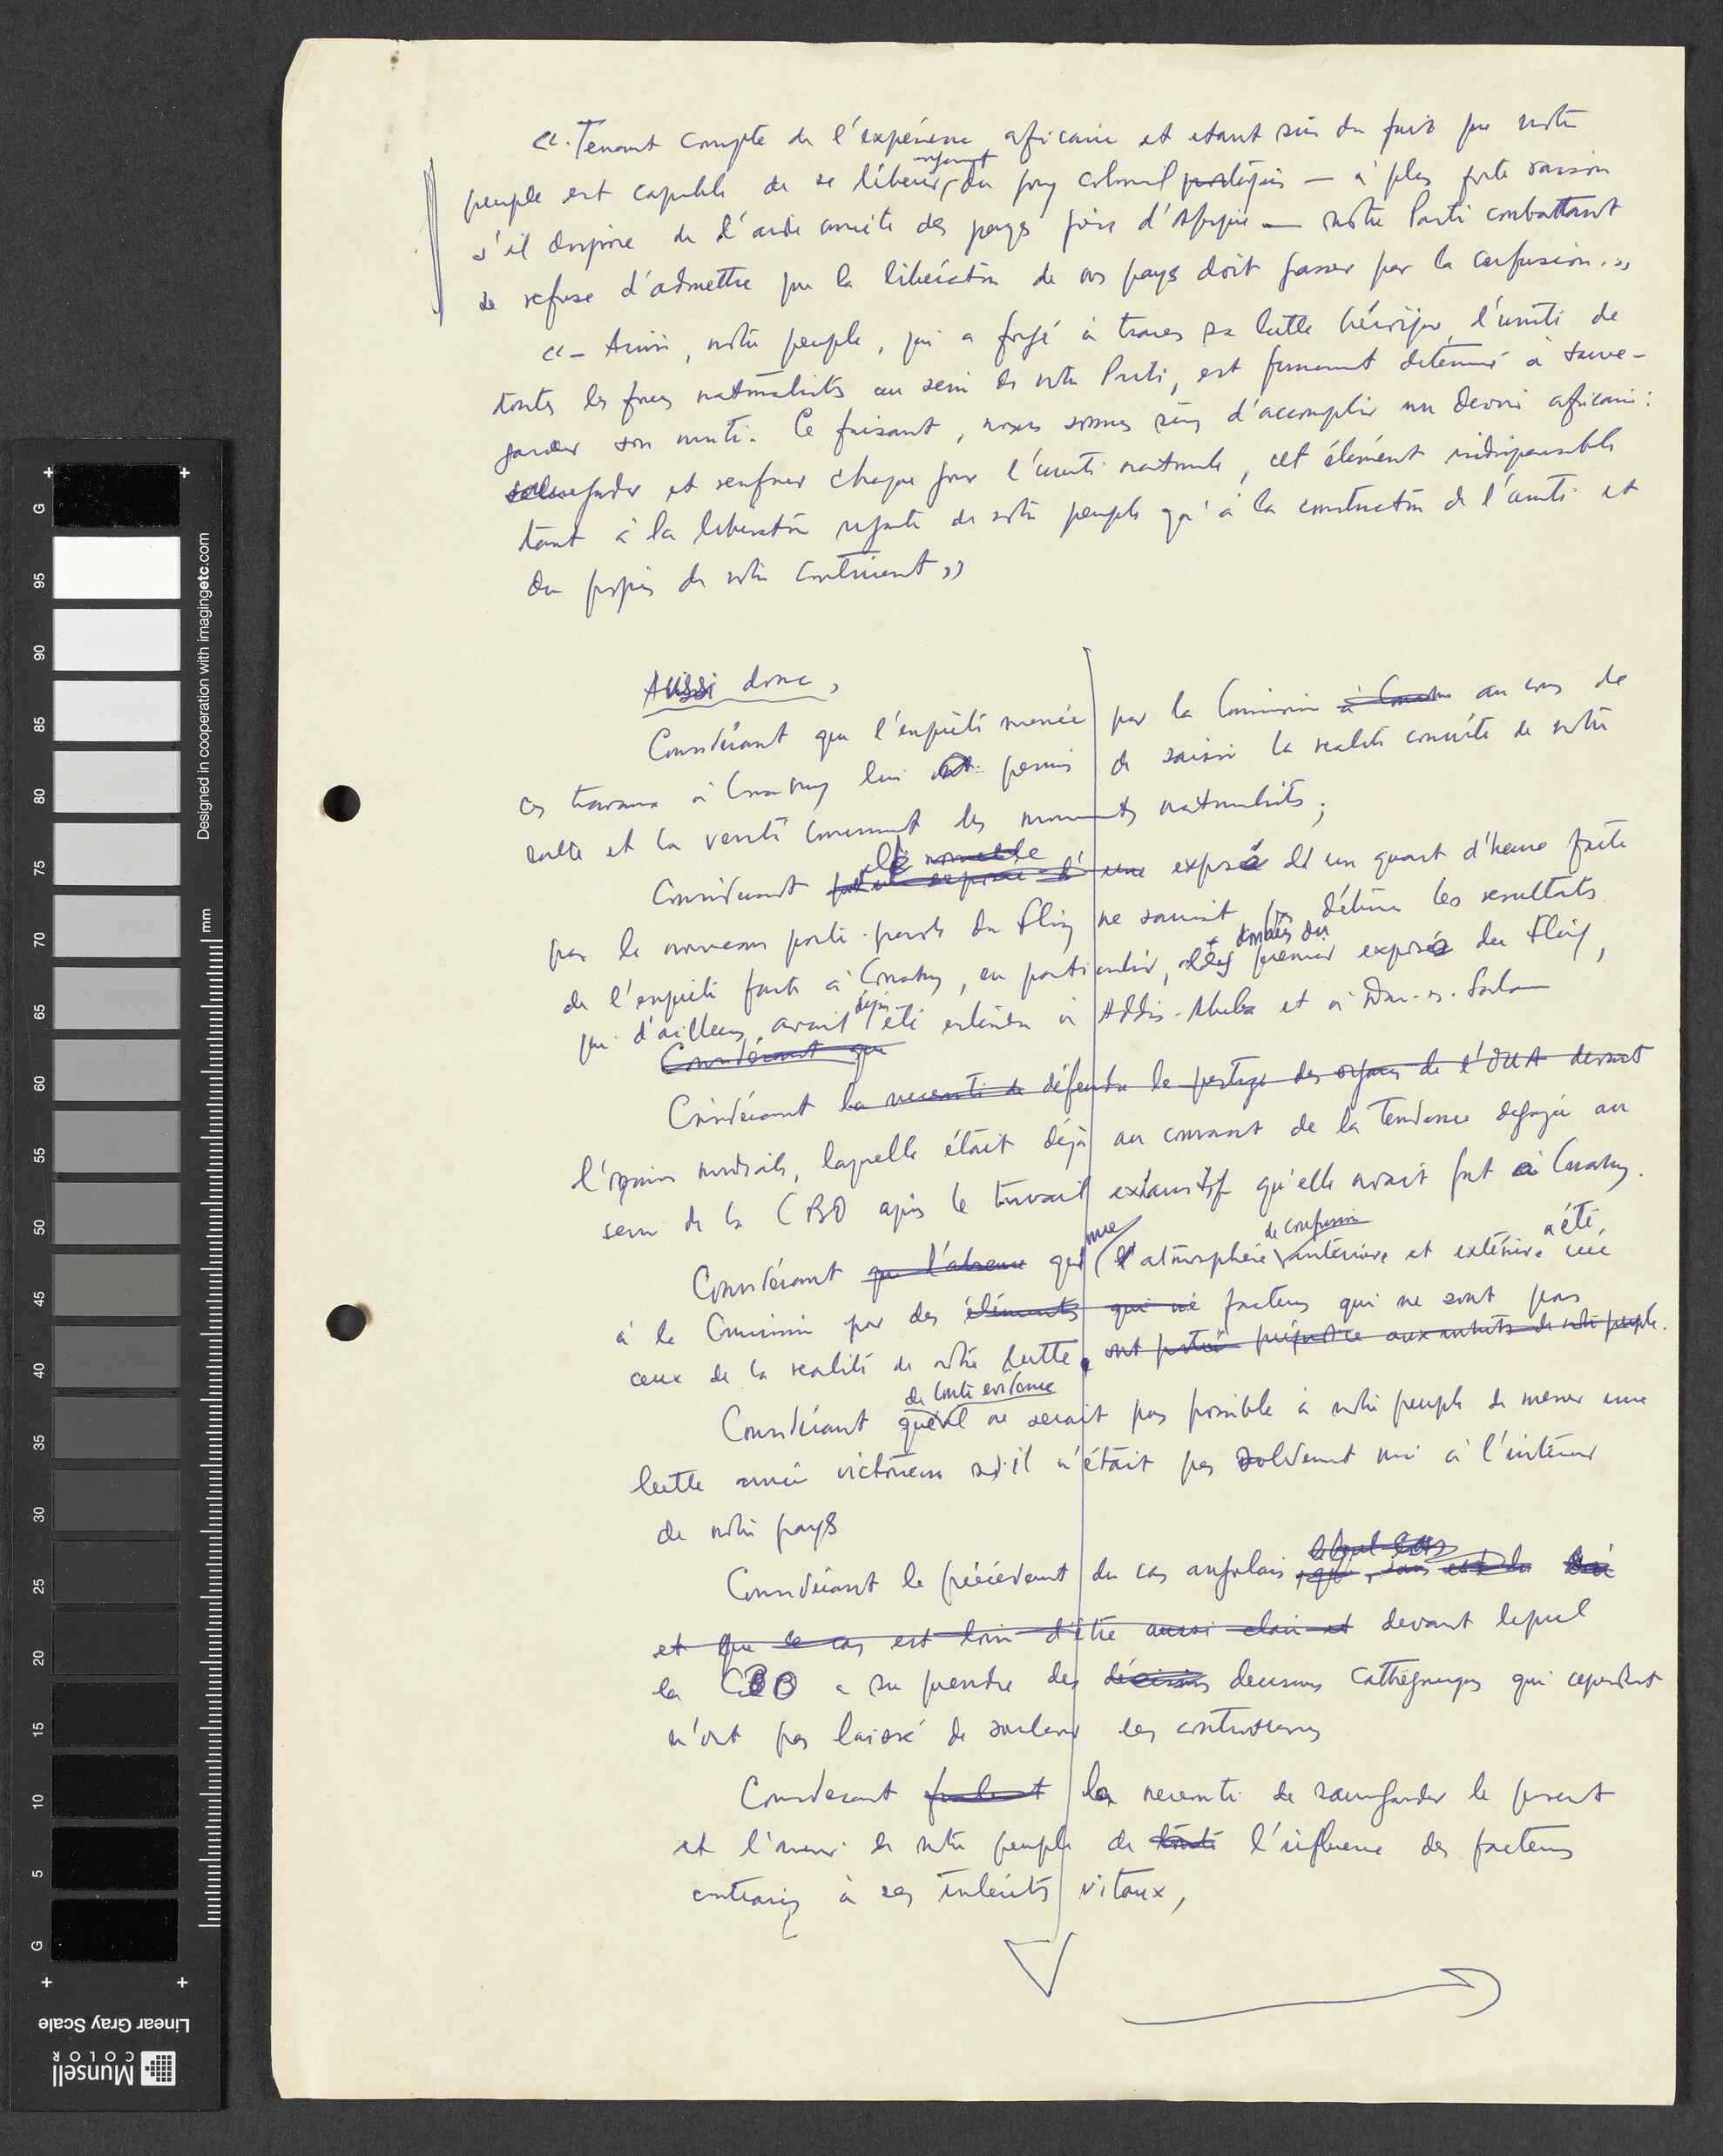 «. Tenant compte de l'expérience africaine et etant sûr du fait que notre
peuple est capable de se libérer, du joug colonial portugais — à plus forte raison
s'il dispose de l'aide concrète des pays frères d'Afrique — notre Parti combattant
se refuse d'admettre que la libération de nos pays doit passer par la confusion.»
«– Ainsi, notre peuple, qui a forgé à travers sa lutte héroïque l'unité de
toutes les forces nationalistes au sein de notre Parti, est fermement déterminé à sauve-
garder son unité. Ce faisant, nous sommes sûrs d'accomplir un devoir africain:
sauvegarder et renforcer chaque jour l'unité nationale, cet élément indispensable
tant à la libération rapide de notre peuple qu'à la construction de l'unité et
du progrès de notre continent»
Aussi donc,
Considérant que l'enquête menée par la Commission à Conakry au cours de
ces travaux à Conakry lui a permis de saisir la realité concrète de notre
lutte et la verité concernant les mouvements nationalistes;
Considerant exposé d'un quart d'heure faite
par le nouveau porte-parole du Fling ne saurait pas détruire les resultats
de l'enquête faite à Conakry, en particulier, données du premier exposé du Fling,
qui d'ailleurs avait déjà été entendu à Addis-Abeba et à Dar-es-Salam
Considérant que
Considérant la necessité de défendre le prestige des organes de l'OUA devant
l'opinion mondiale, laquelle était déjà au courant de la tendance degagée au
sein de la CBO après le travail exhaustif qu'elle avait fait à Conakry.
Considérant que l'absence que une l'atmosphère de confusion intérieure et extérieure a été créé
à la Commission par des éléments qui ne facteurs qui ne sont pas
ceux de la realité de notre lutte. ont porté préjudice aux interets de notre peuple.
Considérant de toute evidence qu'il ne serait pas possible à notre peuple de mener une
lutte armée victorieuse s'il n'était pas solidement uni à l'intérieur
de notre pays
Considérant le précédent du cas angolais
et que ce cas est loin d'être aussi clair et devant lequel
la CBO a su prendre des décisions decisions cathégoriques qui cependant
n'ont pas laissé de soulever les controverses
Considerant la necessité de sauvegarder le présent
et l'avenir de notre peuple de toute l'influence des facteurs
contraires à ses intérêts vitaux,
G
95
90
85
80
75
70
65
60
55
50
45
40
35
30
25
20
15
10
5
G
mm
Designed in cooperation with imagingetc.com
Linear Gray Scale
Munsell
COLOR